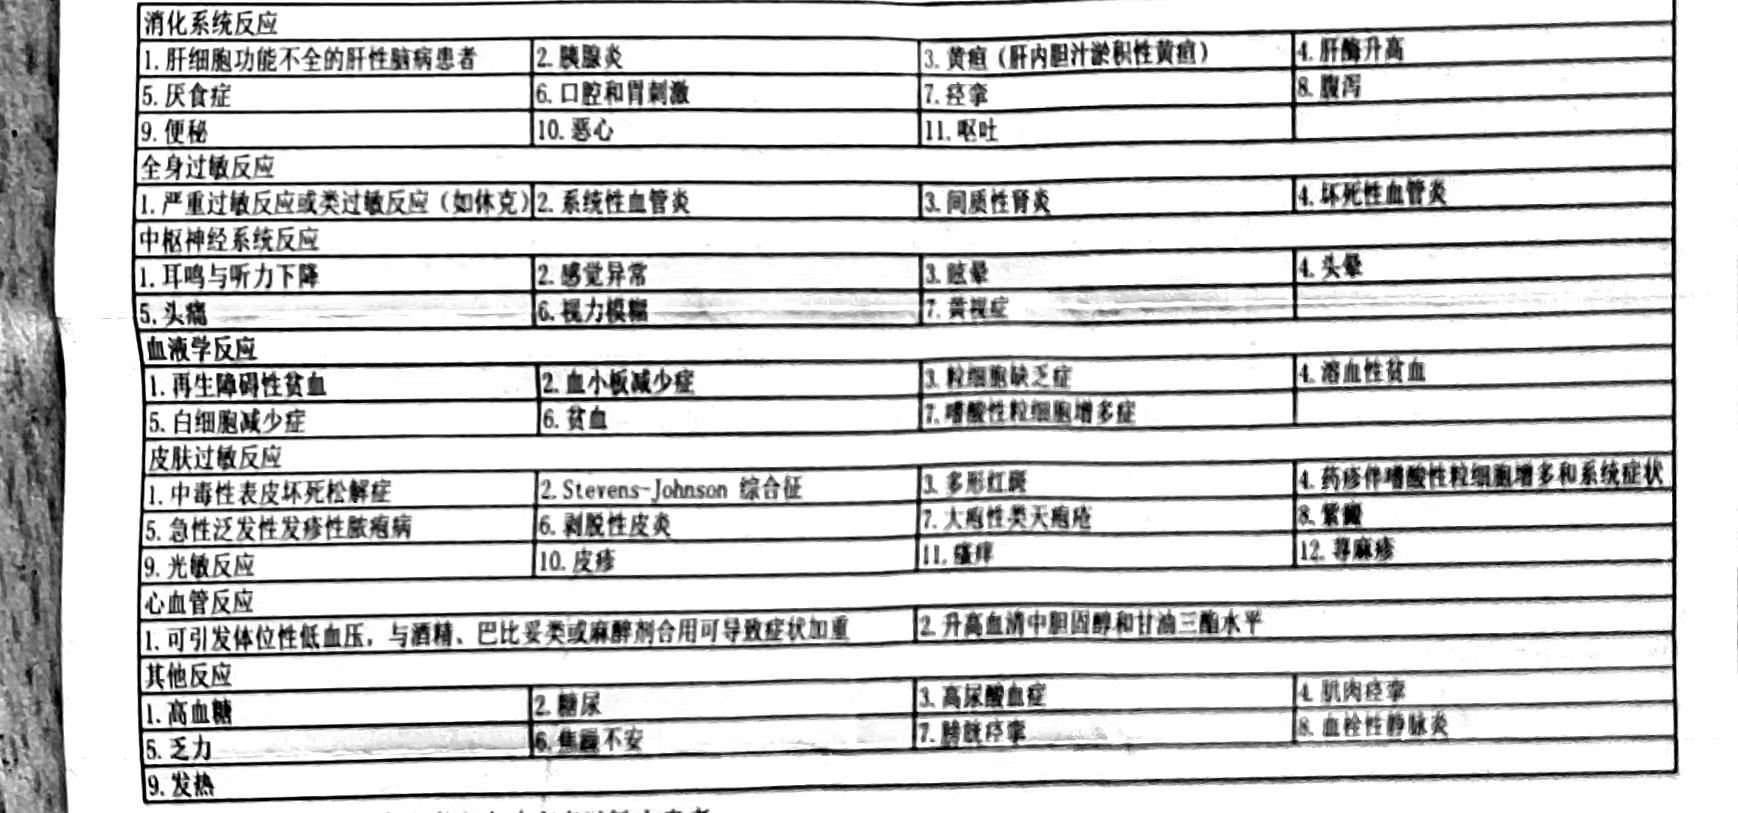 消化系统反应
1. 肝细胞功能不全的肝性脑病患者 2. 胰腺炎 3. 黄疸（肝内胆汁淤积性黄疸） 4. 肝酶升高
5. 厌食症 6. 口腔和胃刺激 7. 痉挛 8. 腹泻
9. 便秘 10. 恶心 11. 呕吐
全身过敏反应
1. 严重过敏反应或类过敏反应（如休克） 2. 系统性血管炎 3. 间质性肾炎 4. 坏死性血管炎
中枢神经系统反应
1. 耳鸣与听力下降 2. 感觉异常 3. 眩晕 4. 头晕
5. 头痛 6. 视力模糊 7. 黄视症
血液学反应
1. 再生障碍性贫血 2. 血小板减少症 3. 粒细胞缺乏症 4. 溶血性贫血
5. 白细胞减少症 6. 贫血 7. 嗜酸性粒细胞增多症
皮肤过敏反应
1. 中毒性表皮坏死松解症 2. Stevens-Johnson 综合征 3. 多形红斑 4. 药疹伴嗜酸性粒细胞增多和系统症状
5. 急性泛发性发疹性脓疱病 6. 剥脱性皮炎 7. 大疱性类天疱疮 8. 紫癜
9. 光敏反应 10. 皮疹 11. 瘙痒 12. 荨麻疹
心血管反应
1. 可引发体位性低血压，与酒精、巴比妥类或麻醉剂合用可导致症状加重 2. 升高血清中胆固醇和甘油三酯水平
其他反应
1. 高血糖 2. 糖尿 3. 高尿酸血症 4. 肌肉痉挛
5. 乏力 6. 焦躁不安 7. 膀胱痉挛 8. 血栓性静脉炎
9. 发热